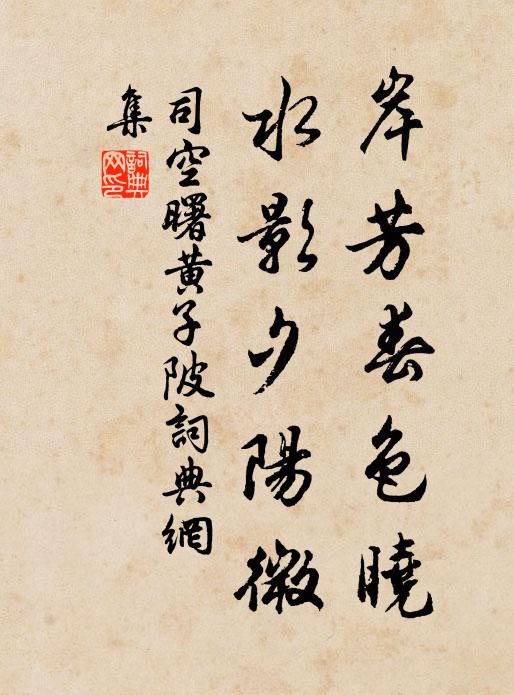 岸芳春色曉
水影夕陽微
司空曙黃子陂詞典網
集
詞典網印